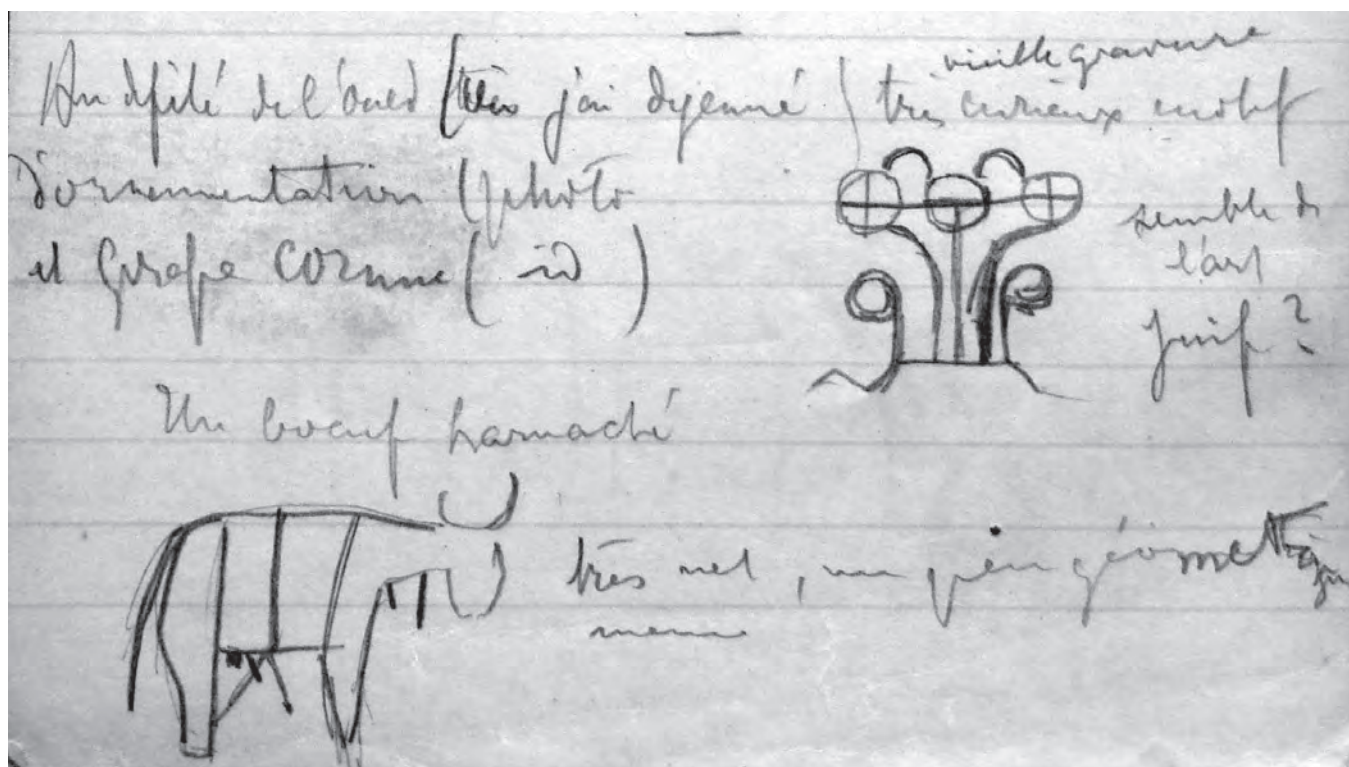 vieille gravure
Au défilé de l'oued (où j'ai dejeuné) très curieux motif
d'ornementation (photo
et Girafe cornue (id)
semble de
l'art
juif ?
Un boeuf harnaché
très net, un peu géométrique
même